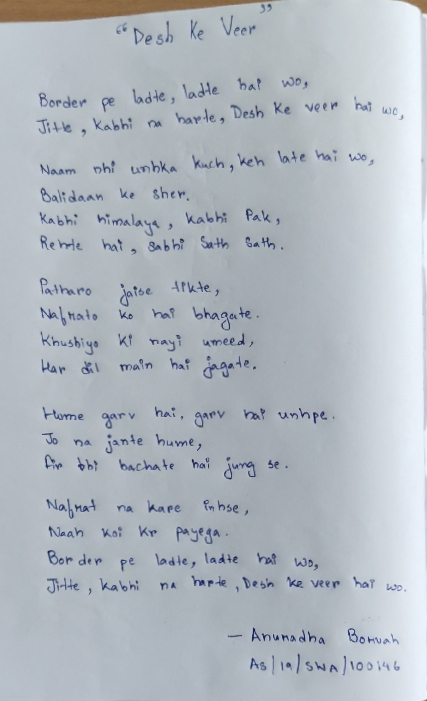 "Desh Ke Veer"
Border pe ladte, ladte hai wo,
Jitte, Kabhi na harte, Desh Ke veer hai wo,
Naam nhi unhka kuch, keh late hai wo,
Balidaan ke sher.
Kabhi himalaya, kabhi Pak,
Rehte hai, sabhi Sath Sath.
Patharo jaise tikte,
Nafrato ko hai bhagate.
Khushiyo Ki nayi umeed,
Har dil main hai jagate.
Hume garv hai, garv hai unhpe.
Jo na jante hume,
Fir bhi bachate hai jung se.
Nafrat na kare inhse,
Naah koi Kr payega.
Border pe ladte, ladte hai wo,
Jitte, Kabhi na harte, Desh ke veer hai wo.
- Anuradha Boruah
AS/19/SWA/100146